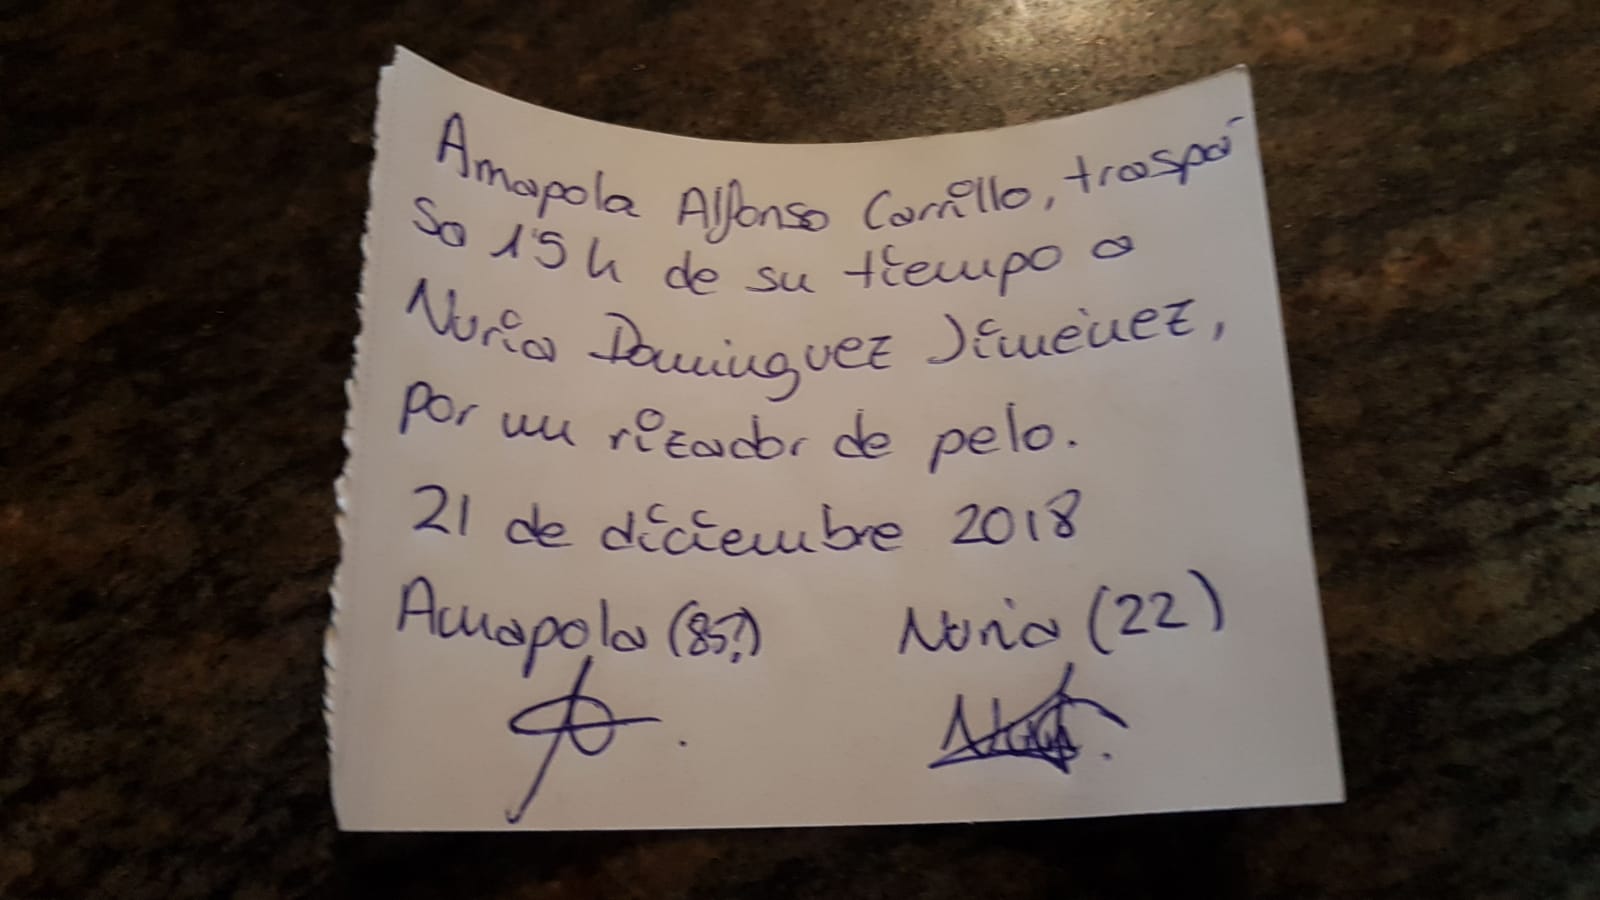 Amapola Alfonso Carrillo, traspa-
sa 15h de su tiempo a
Nuria Dominguez Jiménez,
por un rizador de pelo.
21 de diciembre 2018
Amapola (85?) Nuria (22)